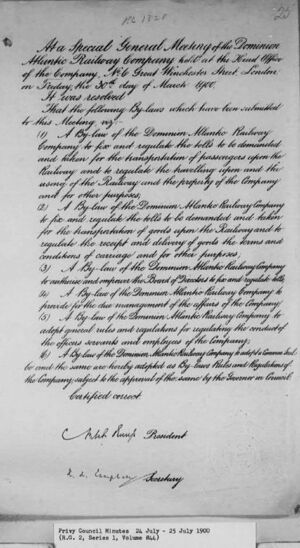 At a Special General Meeting of the Dominion
Atlantic Railway Company held at the Head Office
of the Company, No 6 Great Winchester Street, London
on Friday, the 30th day of March 1900,
It was resolved
That the following By-laws which have been submitted
to this Meeting, viz:-
(1) A By-law of the Dominion Atlantic Railway
Company to fix and regulate the tolls to be demanded
and taken for the transportation of passengers upon the
Railway and to regulate the travelling upon and the
using of the Railway and the property of the Company
and for other purposes;
(2) A By-law of the Dominion Atlantic Railway Company
to fix and regulate the tolls to be demanded and taken
for the transportation of goods upon the Railway and to
regulate the receipt and delivery of goods the terms and
conditions of carriage and for other purposes.
(3) A By-law of the Dominion Atlantic Railway Company
to authorise and empower the Board of Directors to fix and regulate tolls
(4) A By-law of the Dominion Atlantic Railway Company to
provide for the due management of the affairs of the Company
(5) A By-law of the Dominion Atlantic Railway Company to
adopt general rules and regulations for regulating the conduct of
the officers servants and employees of the Company;
(6) A By-law of the Dominion Atlantic Railway Company to adopt a Common Seal
be and the same are hereby adopted as By-laws Rules and Regulations of
the Company, subject to the approval of the same by the Governor in Council.
Certified correct
President
Secretary
Privy Council Minutes 24 July - 25 July 1900
(R.G. 2, Series 1, Volume 844)